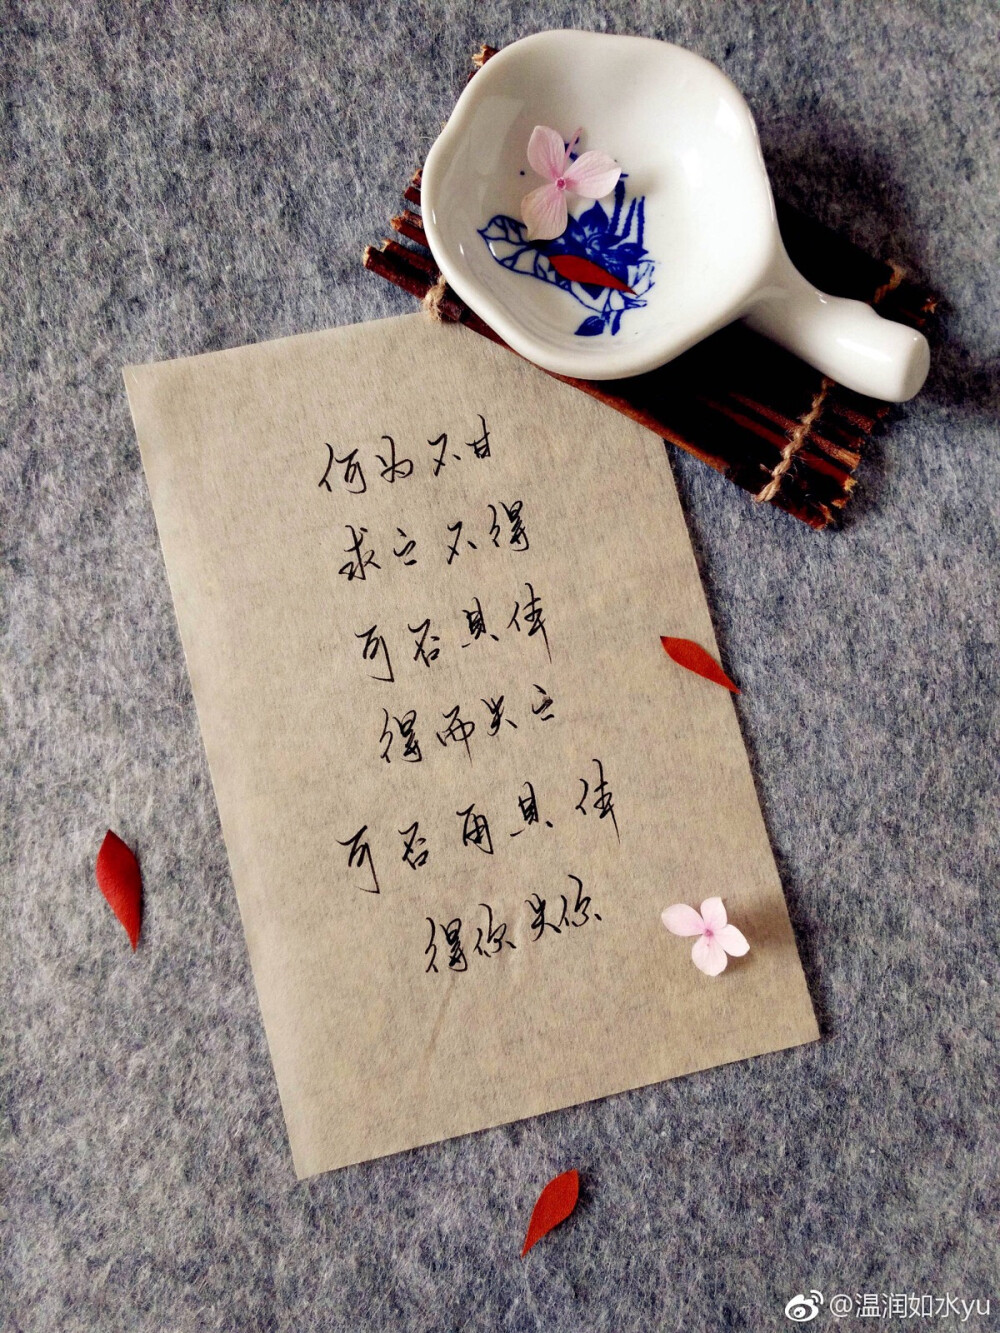 何为不甘
求之不得
可否具体
得而失之
可否再具体
得你失你
@温润如水yu